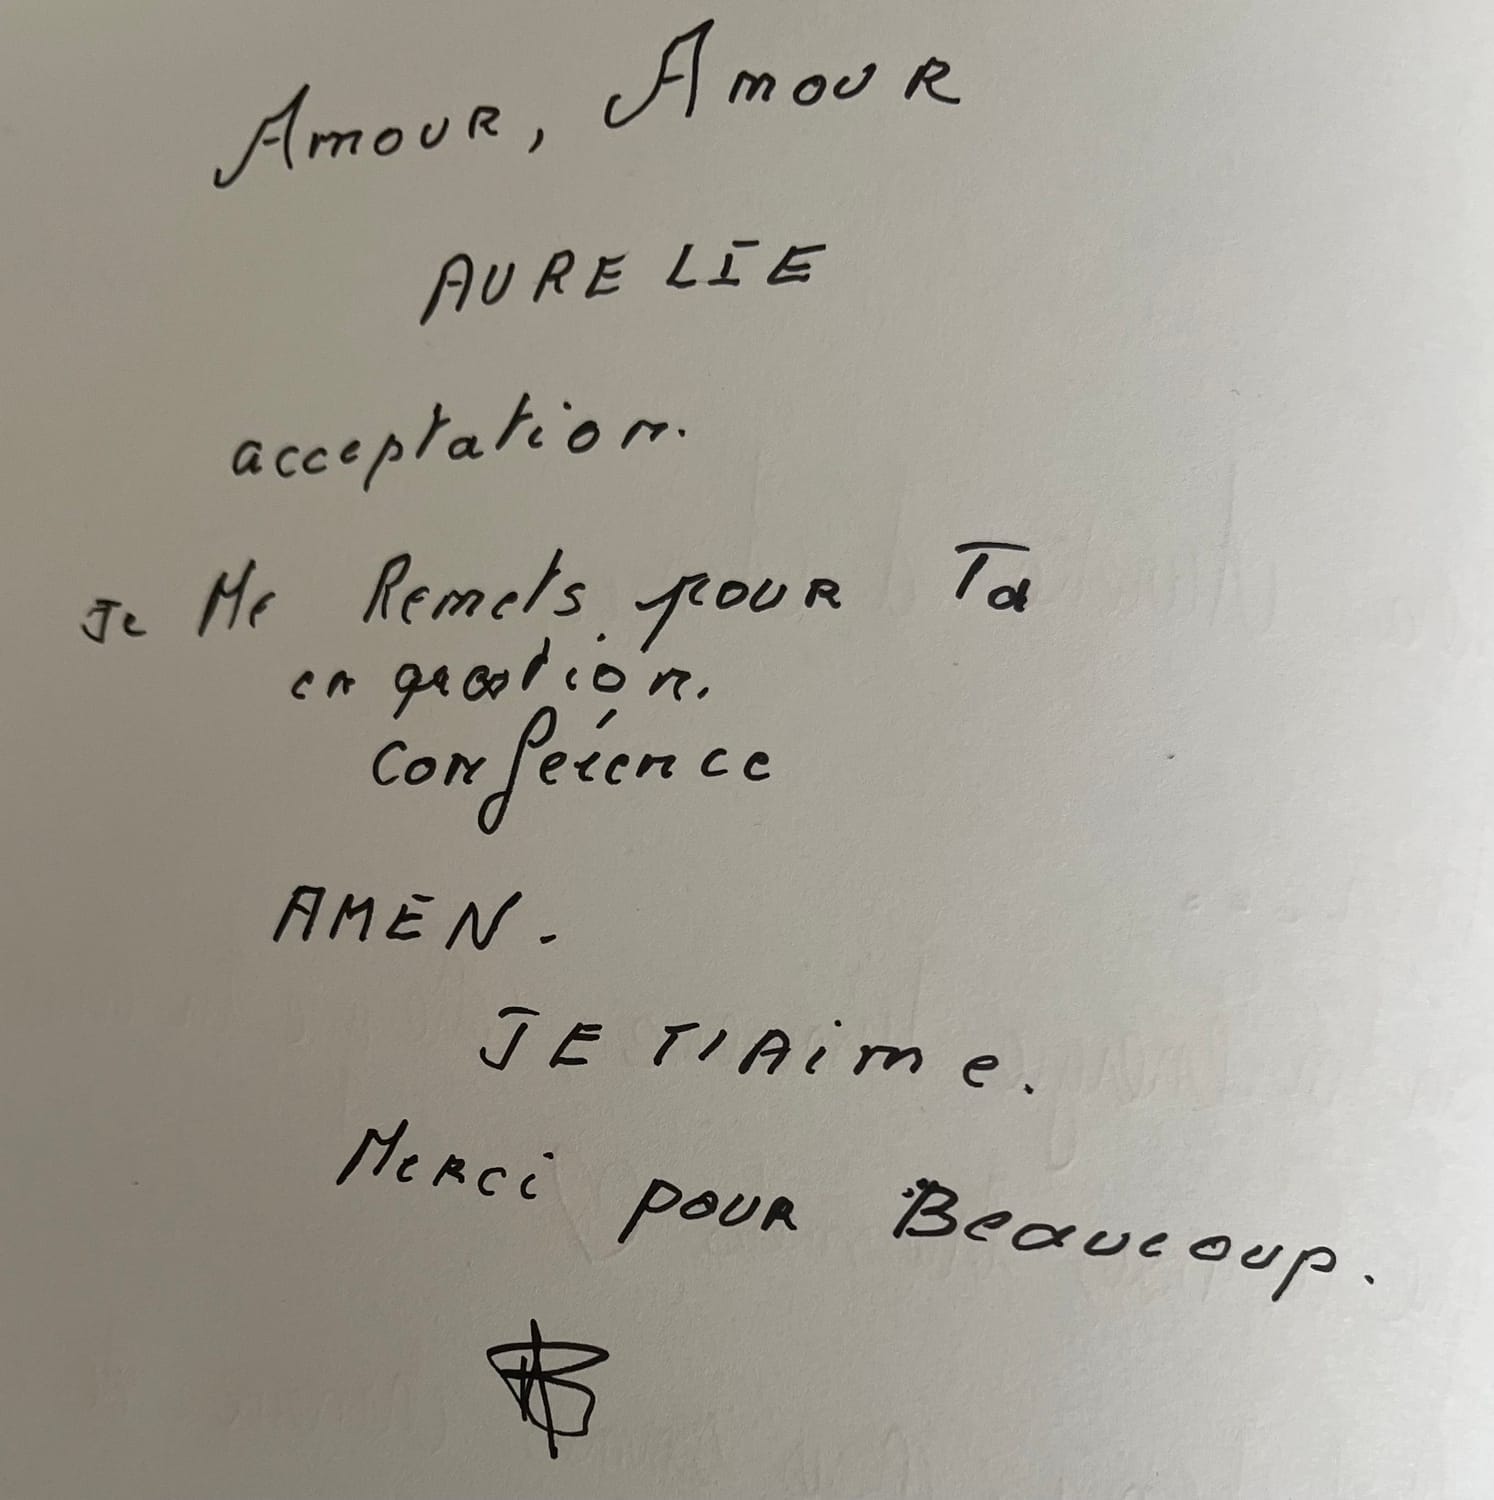 Amour, Amour
AURELIE
acceptation.
Je Me Remets pour Ta
en question.
Conférence
AMEN.
JE T'Aime.
Merci pour Beaucoup.